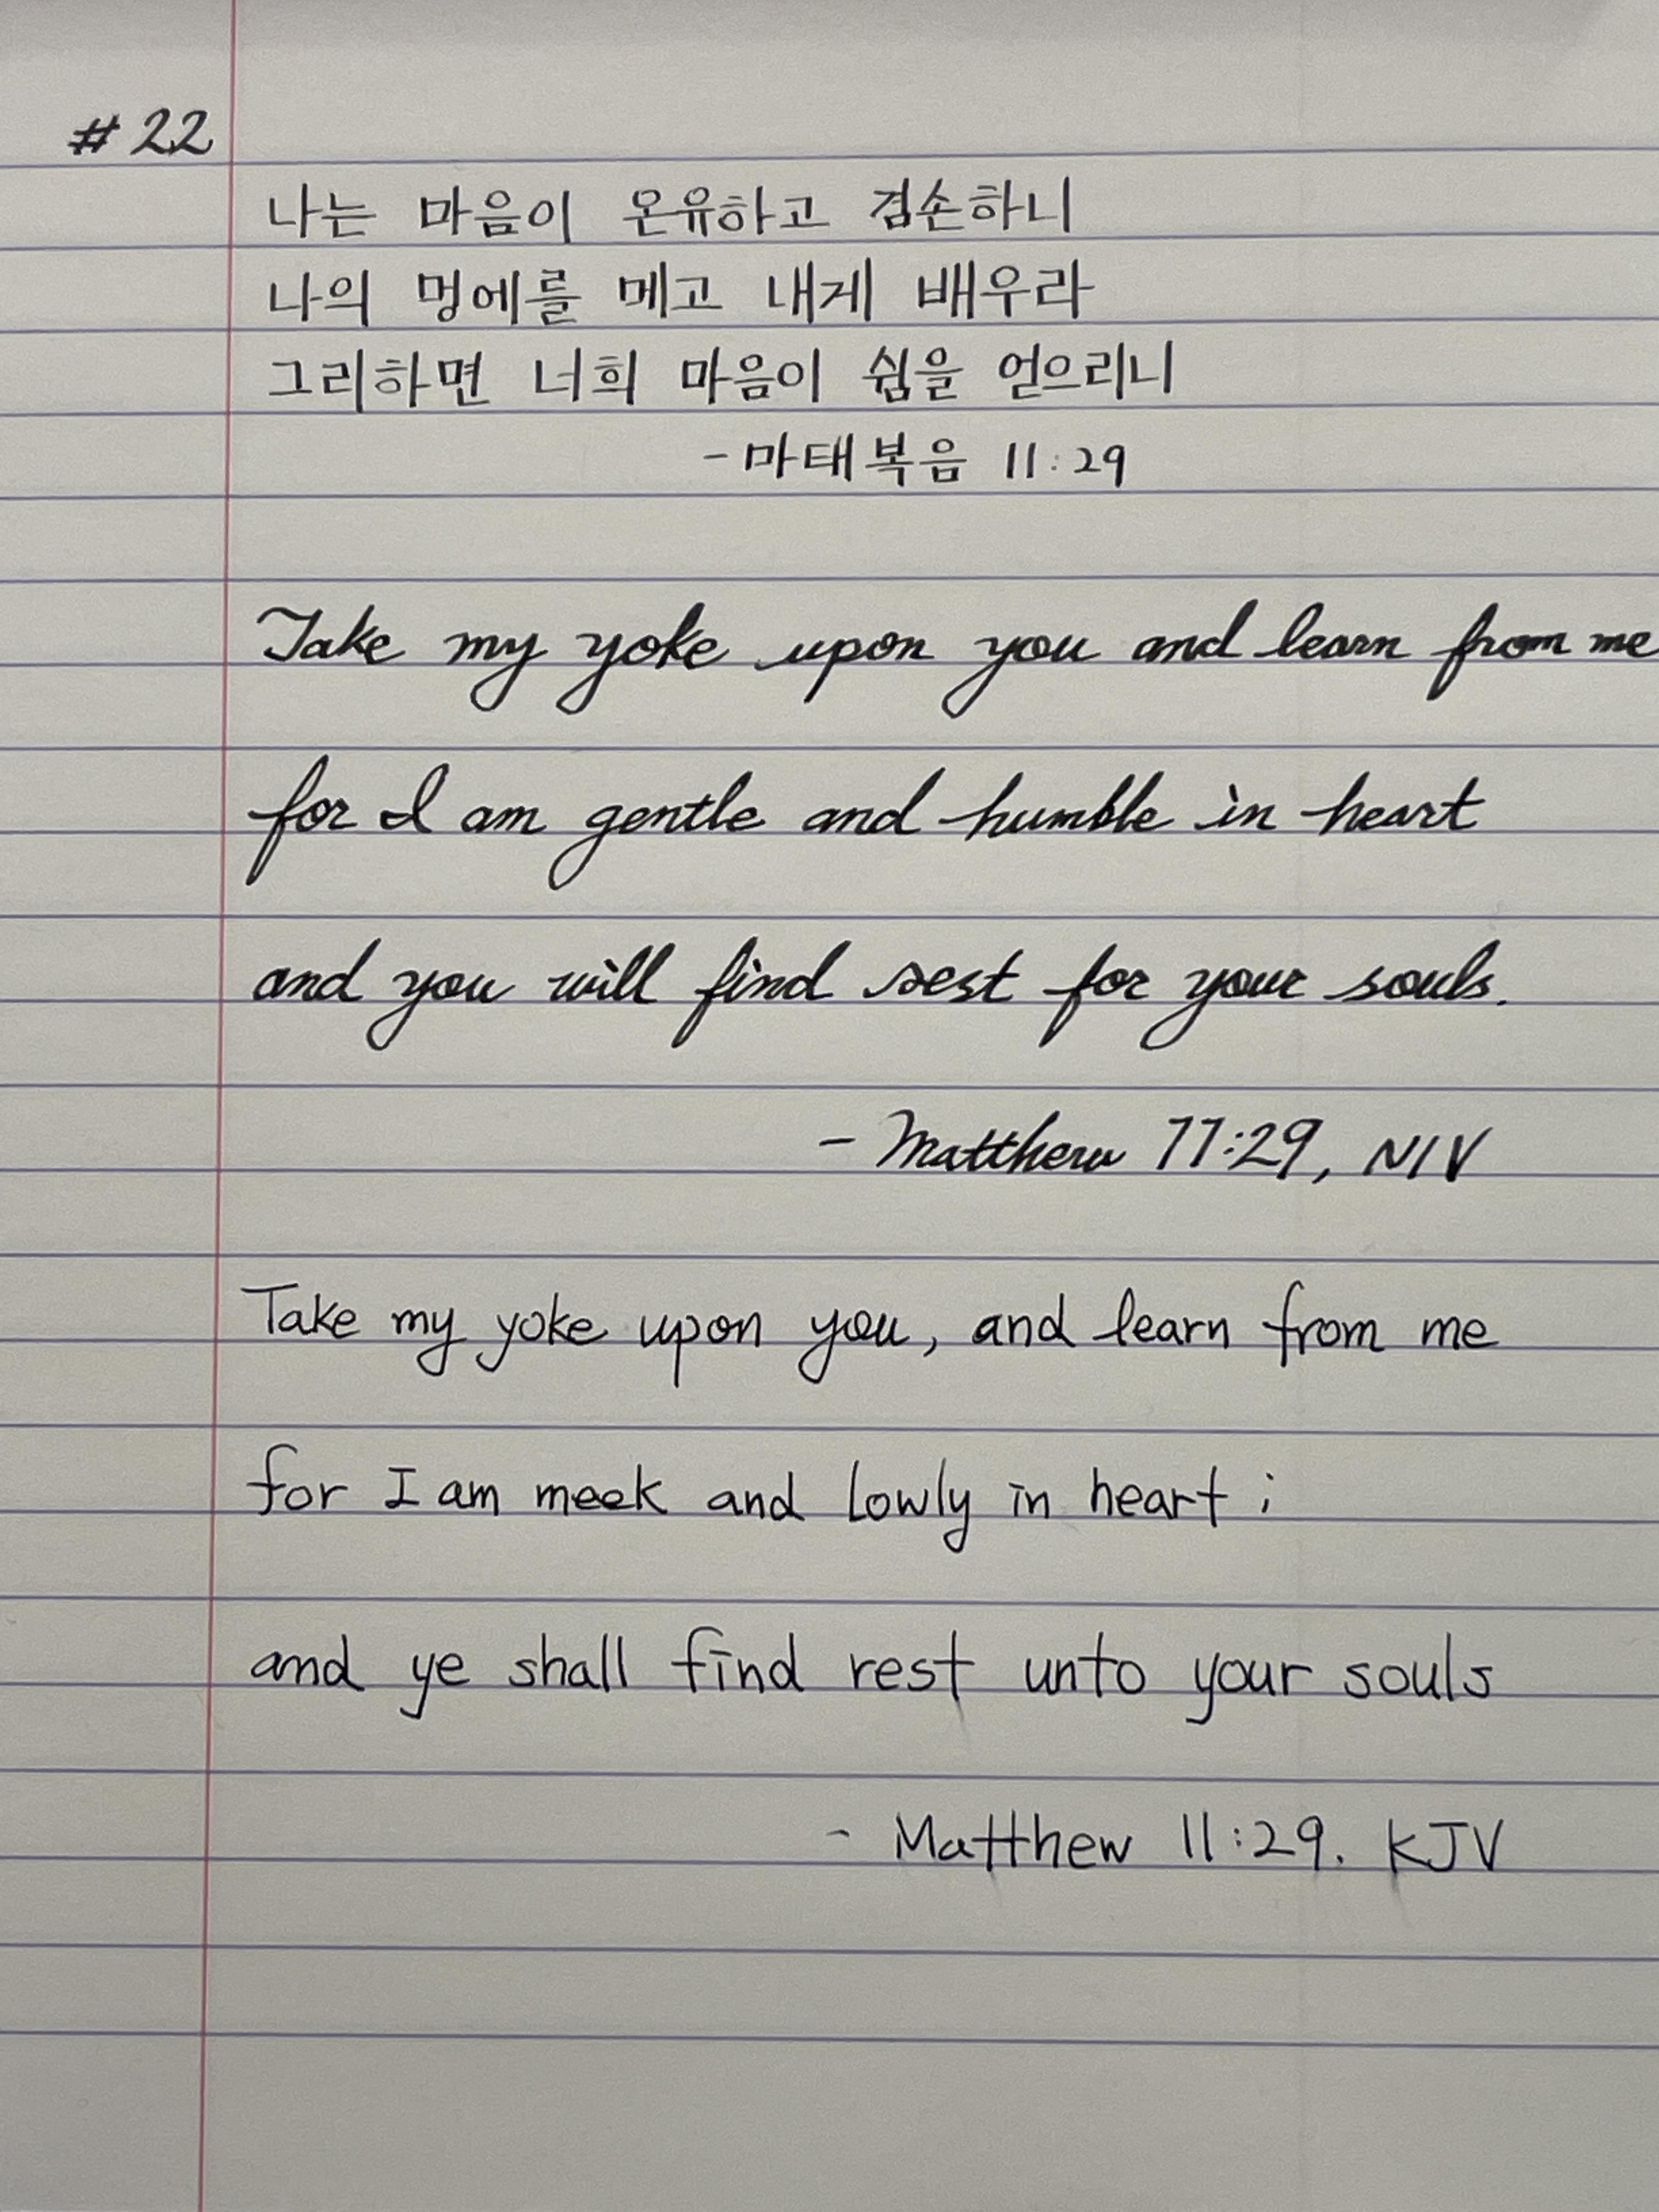 # 22
나는 마음이 온유하고 겸손하니
나의 멍에를 메고 내게 배우라
그리하면 너희 마음이 쉼을 얻으리니
- 마태복음 11:29
Take my yoke upon you and learn from me
for I am gentle and humble in heart
and you will find rest for your souls.
- Matthew 11:29, NIV
Take my yoke upon you, and learn from me
for I am meek and lowly in heart ;
and ye shall find rest unto your souls
- Matthew 11:29. KJV